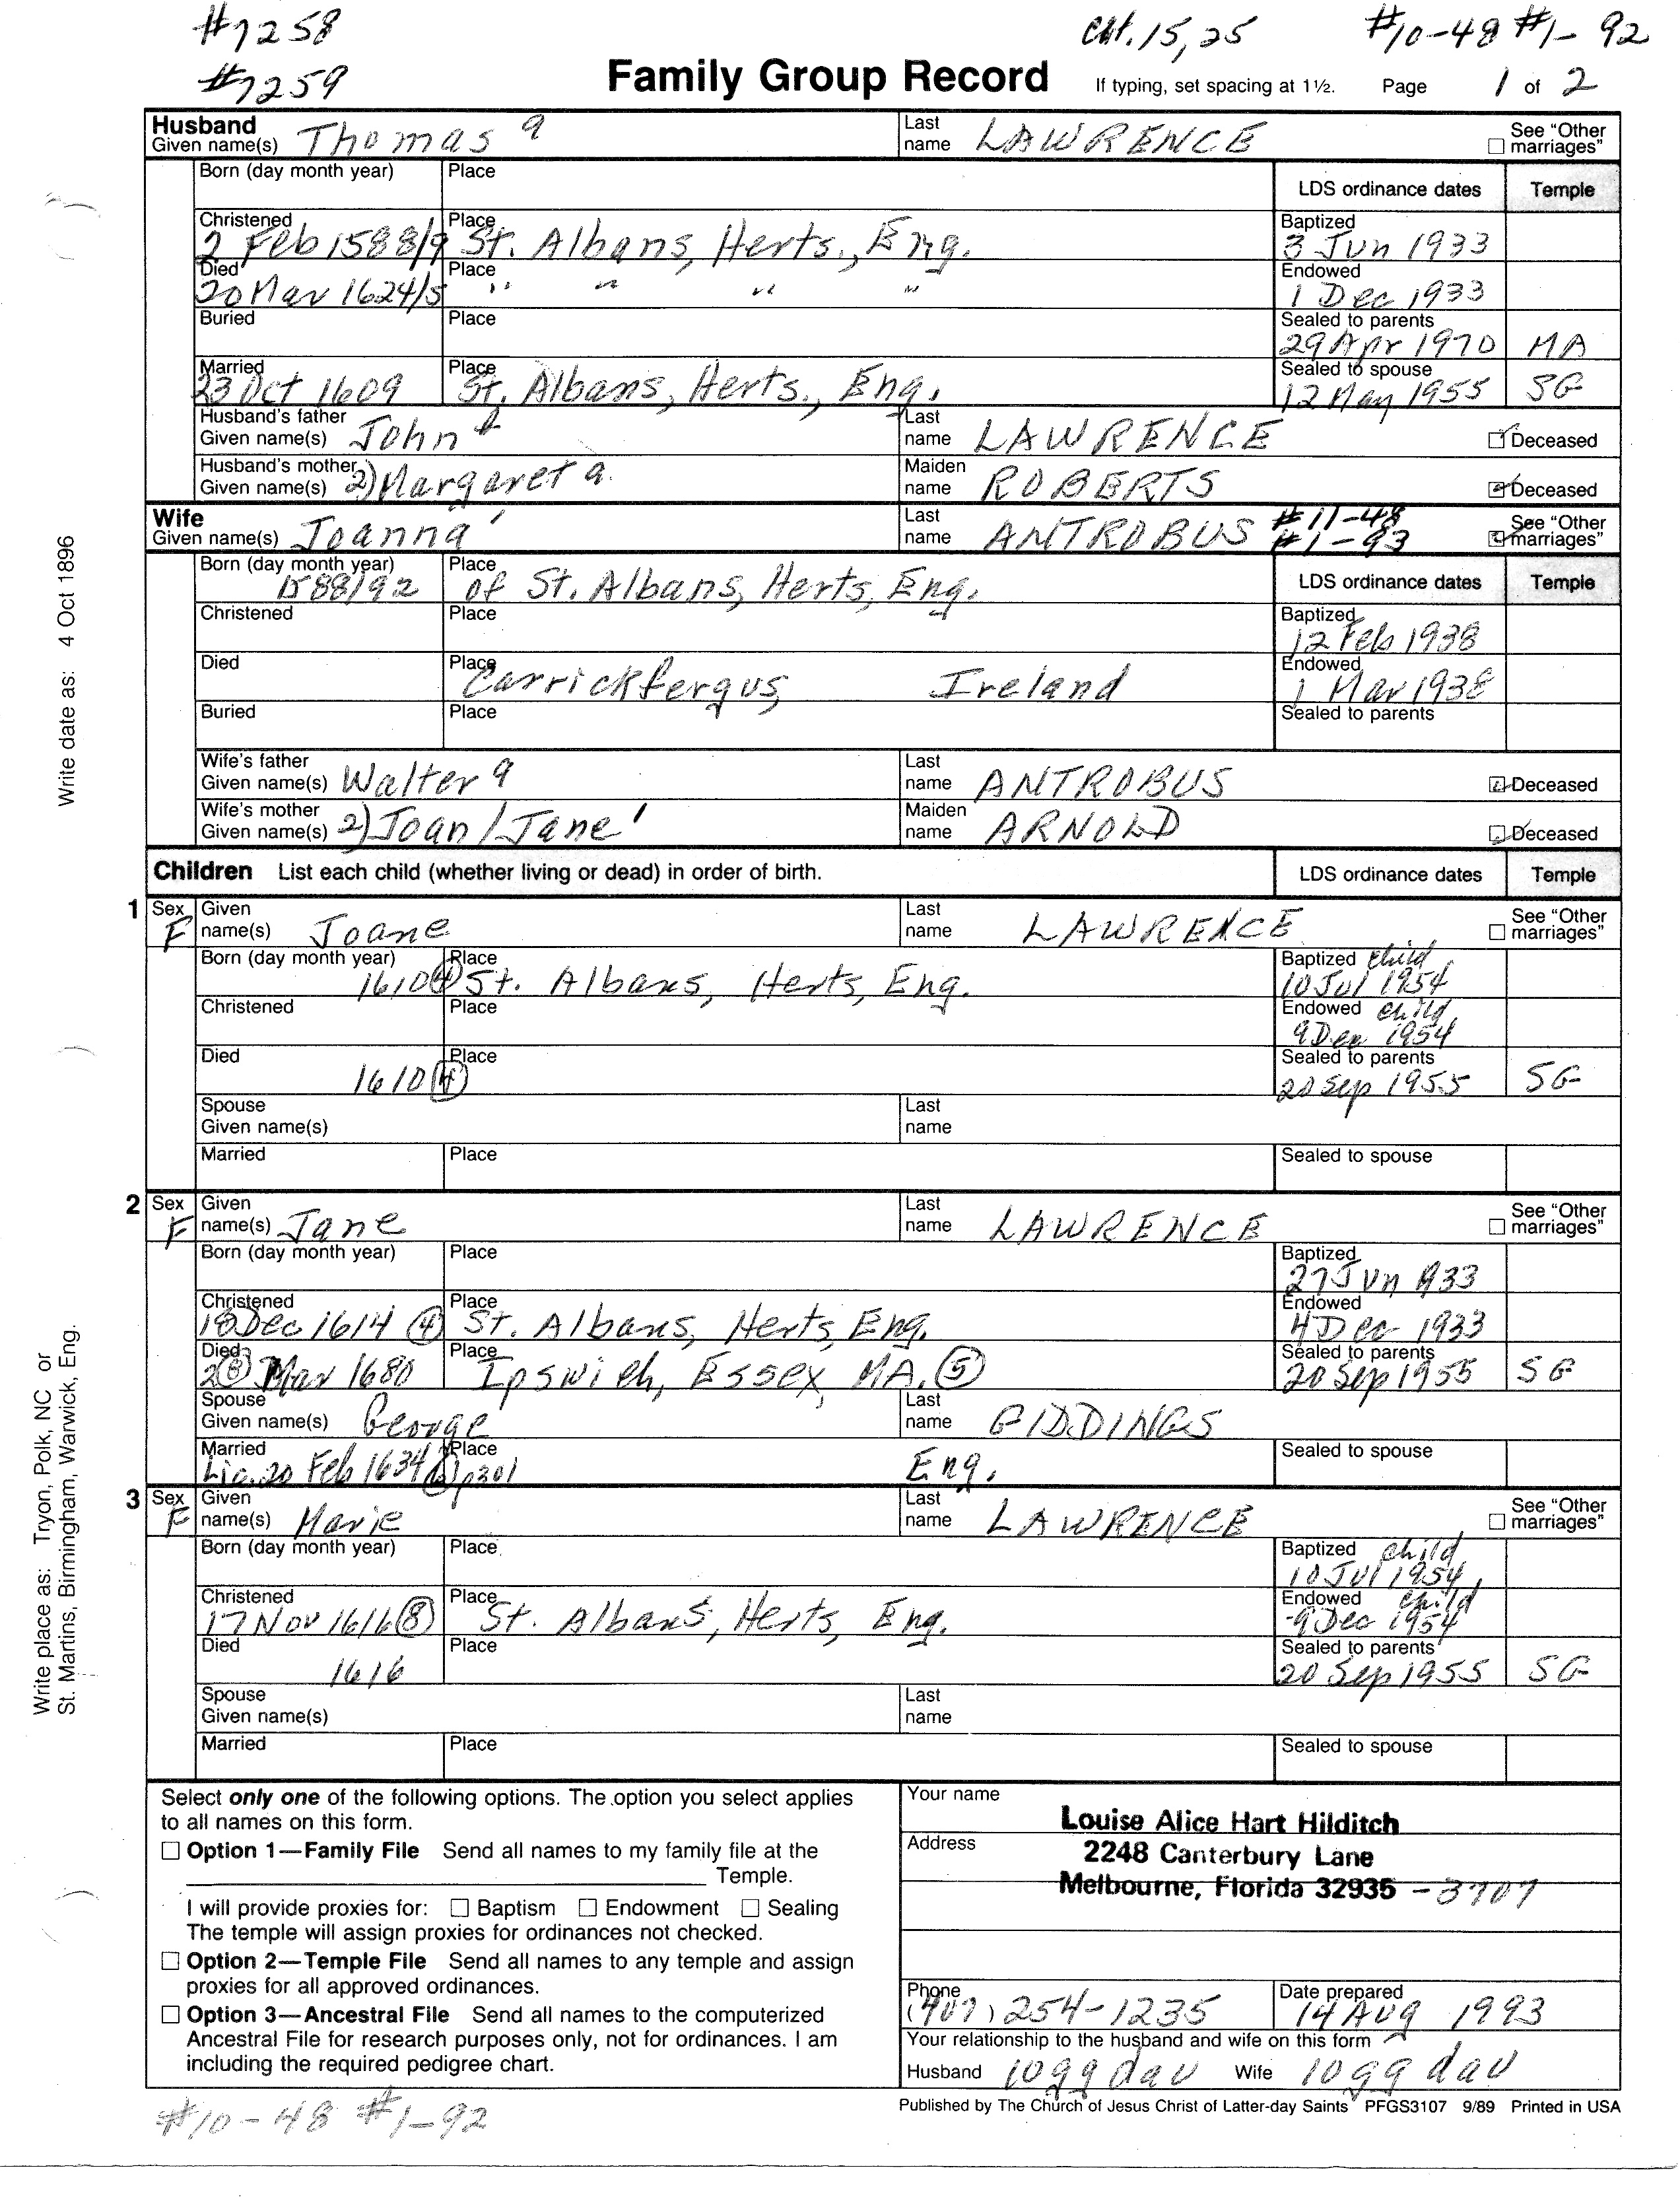 #7258
Cht. 15, 25 #10-48 #1-92
#7259
Family Group Record If typing, set spacing at 1½. Page 1 of 2
Husband
Given name(s) Thomas Last name LAWRENCE See "Other marriages"
Born (day month year) Place LDS ordinance dates Temple
Christened 2 Feb 1588/9 Place St. Albans, Herts., Eng. Baptized 3 Jun 1933
Died 20 Mar 1624/5 Place " " " " Endowed 1 Dec 1933
Buried Place Sealed to parents 29 Apr 1970 MA
Married 23 Oct 1609 Place St. Albans, Herts., Eng. Sealed to spouse 12 May 1955 SG
Husband's father Given name(s) John Last name LAWRENCE Deceased
Husband's mother Given name(s) 2) Margaret Maiden name ROBERTS Deceased
Wife
Given name(s) Joanna Last name ANTROBUS #11-48 #1-93 See "Other marriages"
Born (day month year) 1588/92 Place of St. Albans, Herts, Eng. LDS ordinance dates Temple
Christened Place Baptized 12 Feb 1938
Died Place Carrickfergus, Ireland Endowed 1 Mar 1938
Buried Place Sealed to parents
Wife's father Given name(s) Walter Last name ANTROBUS Deceased
Wife's mother Given name(s) 2) Joan/Jane Maiden name ARNOLD Deceased
Children List each child (whether living or dead) in order of birth. LDS ordinance dates Temple
1 Sex F Given name(s) Joane Last name LAWRENCE See "Other marriages"
Born (day month year) 1610 (4) Place St. Albans, Herts, Eng. Baptized child 10 Jul 1954
Christened Place Endowed child 9 Dec 1954
Died 1610 (4) Place Sealed to parents 20 Sep 1955 SG
Spouse Given name(s) Last name
Married Place Sealed to spouse
2 Sex F Given name(s) Jane Last name LAWRENCE See "Other marriages"
Born (day month year) Place Baptized 27 Jun 1933
Christened 18 Dec 1614 (4) Place St. Albans, Herts, Eng. Endowed 4 Dec 1933
Died Mar 1680 Place Ipswich, Essex, MA. (5) Sealed to parents 20 Sep 1955 SG
Spouse Given name(s) George Last name GIDDINGS
Married Lic. 20 Feb 1634 p301 Place Eng. Sealed to spouse
3 Sex F Given name(s) Marie Last name LAWRENCE See "Other marriages"
Born (day month year) Place Baptized child 10 Jul 1954
Christened 17 Nov 1616 (8) Place St. Albans, Herts, Eng. Endowed child 9 Dec 1954
Died 1616 Place Sealed to parents 20 Sep 1955 SG
Spouse Given name(s) Last name
Married Place Sealed to spouse
Select only one of the following options. The option you select applies
to all names on this form.
Option 1—Family File Send all names to my family file at the
Temple.
I will provide proxies for: Baptism Endowment Sealing
The temple will assign proxies for ordinances not checked.
Option 2—Temple File Send all names to any temple and assign
proxies for all approved ordinances.
Option 3—Ancestral File Send all names to the computerized
Ancestral File for research purposes only, not for ordinances. I am
including the required pedigree chart.
Your name Louise Alice Hart Hilditch
Address 2248 Canterbury Lane
Melbourne, Florida 32935 - 3707
Phone (407) 254-1235 Date prepared 14 Aug 1993
Your relationship to the husband and wife on this form
Husband 10 gg dau Wife 10 gg dau
Published by The Church of Jesus Christ of Latter-day Saints PFGS3107 9/89 Printed in USA
#10-48 #1-92
Write date as: 4 Oct 1896
Write place as: Tryon, Polk, NC or
St. Martins, Birmingham, Warwick, Eng.